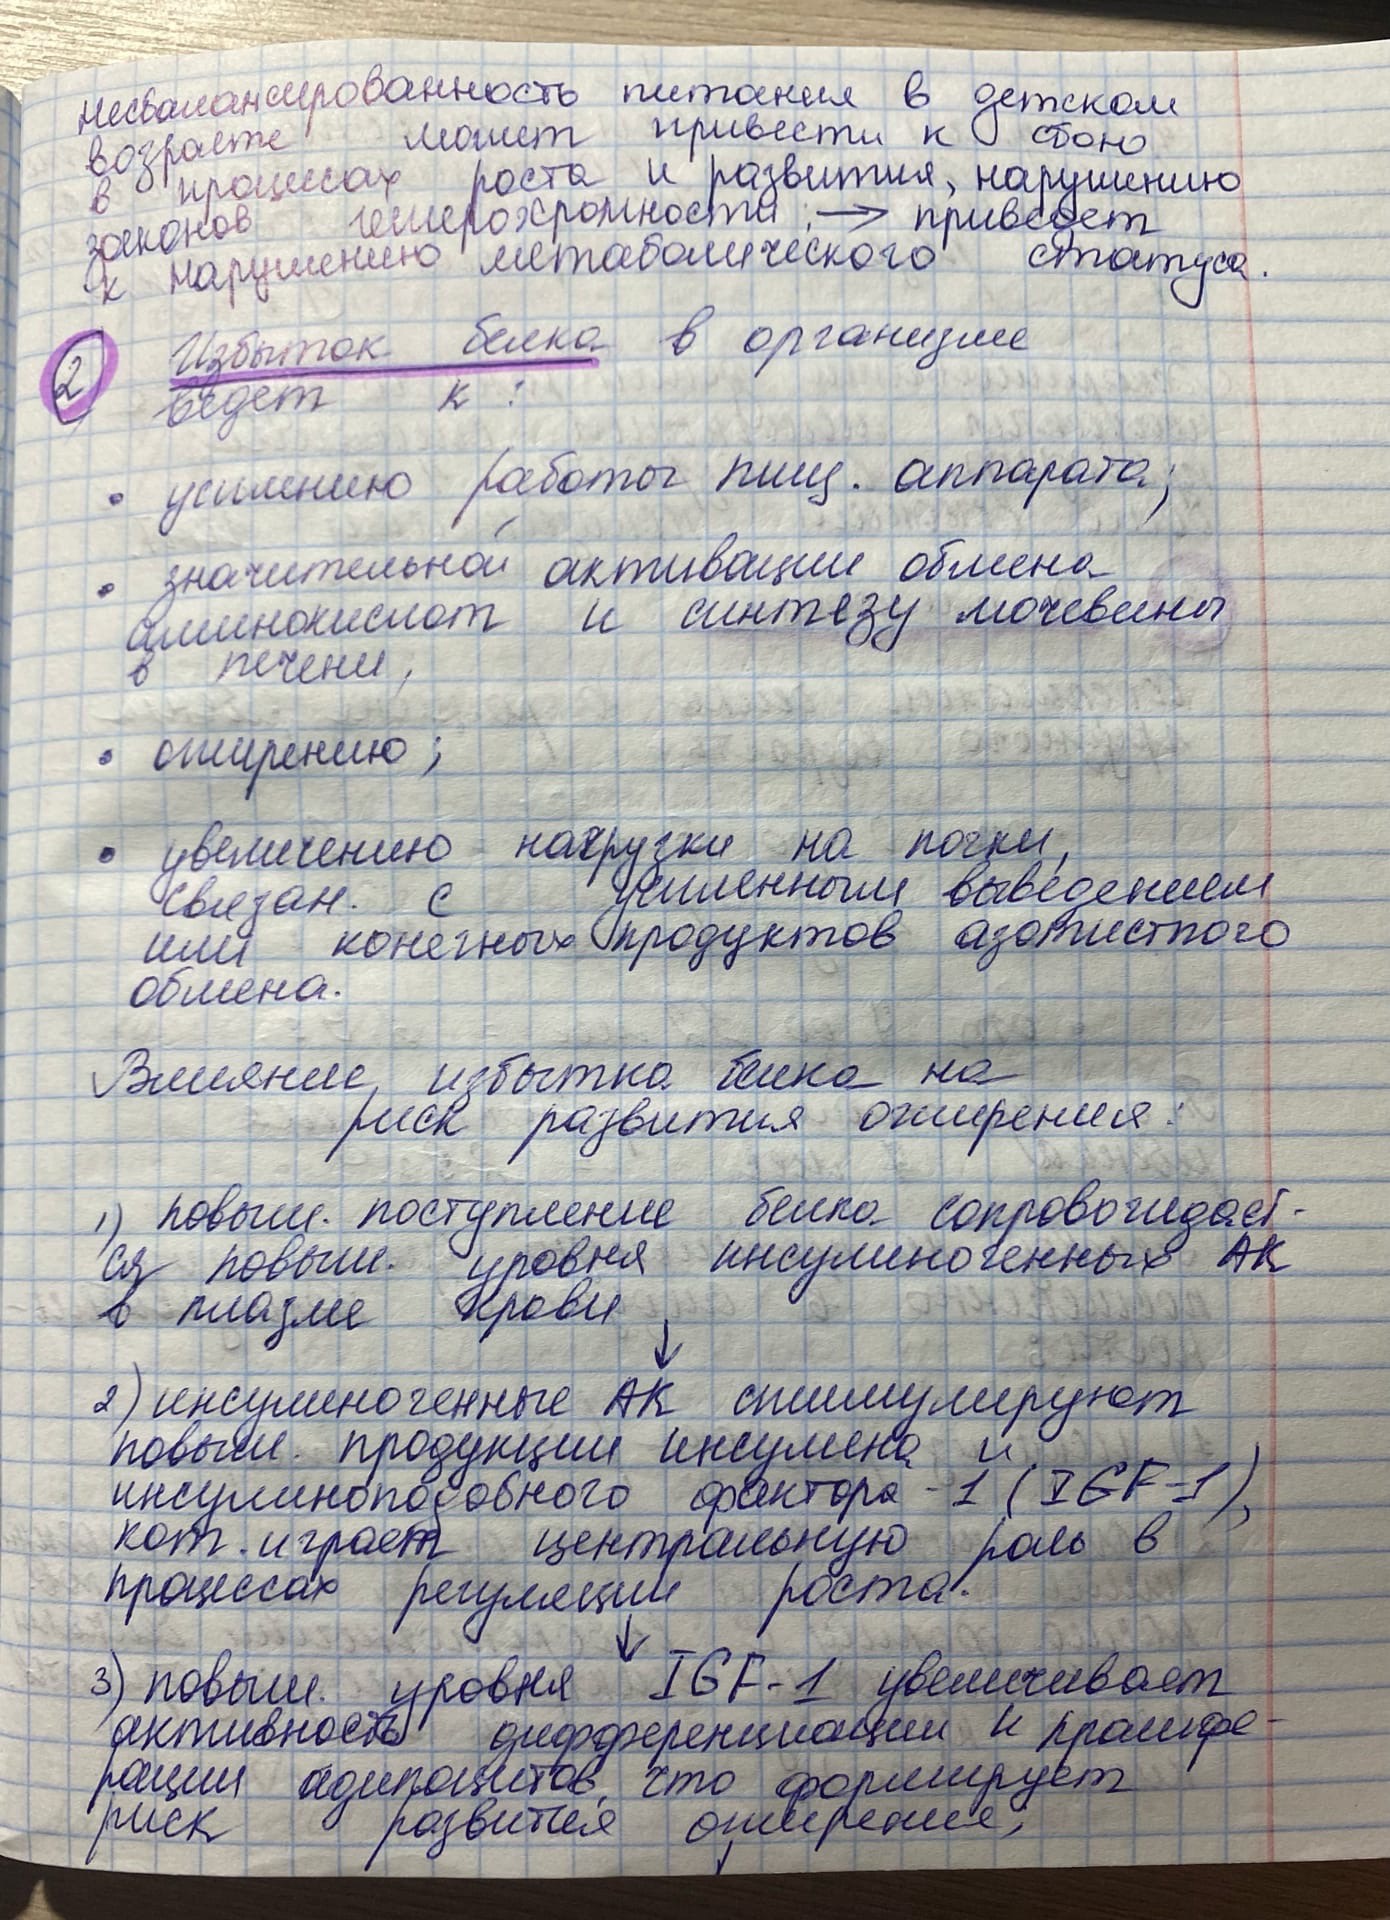 Несбалансированность питания в детском
возрасте может привести к сбою
в процессах роста и развития, нарушению
законов гетерохромности; → приведет
к нарушению метаболического статуса.
2 Избыток белка в организме
ведет к:
• усилению работы пищ. аппарата;
• значительной активации обмена
аминокислот и синтезу мочевины
в печени;
• ожирению;
• увеличению нагрузки на почки,
связан. с усиленным выведением
ими конечных продуктов азотистого
обмена.
Влияние избытка белка на
риск развития ожирения:
1) повыш. поступление белка сопровождает-
ся повыш. уровня инсулиногенных АК
в плазме крови
↓
2) инсулиногенные АК стимулируют
повыш. продукции инсулина и
инсулиноподобного фактора-1 (IGF-1),
кот. играет центральную роль в
процессах регуляции роста.
↓
3) повыш. уровня IGF-1 увеличивает
активность дифференциации и пролифе-
рации адипоцитов, что формирует
риск развития ожирения;
↓